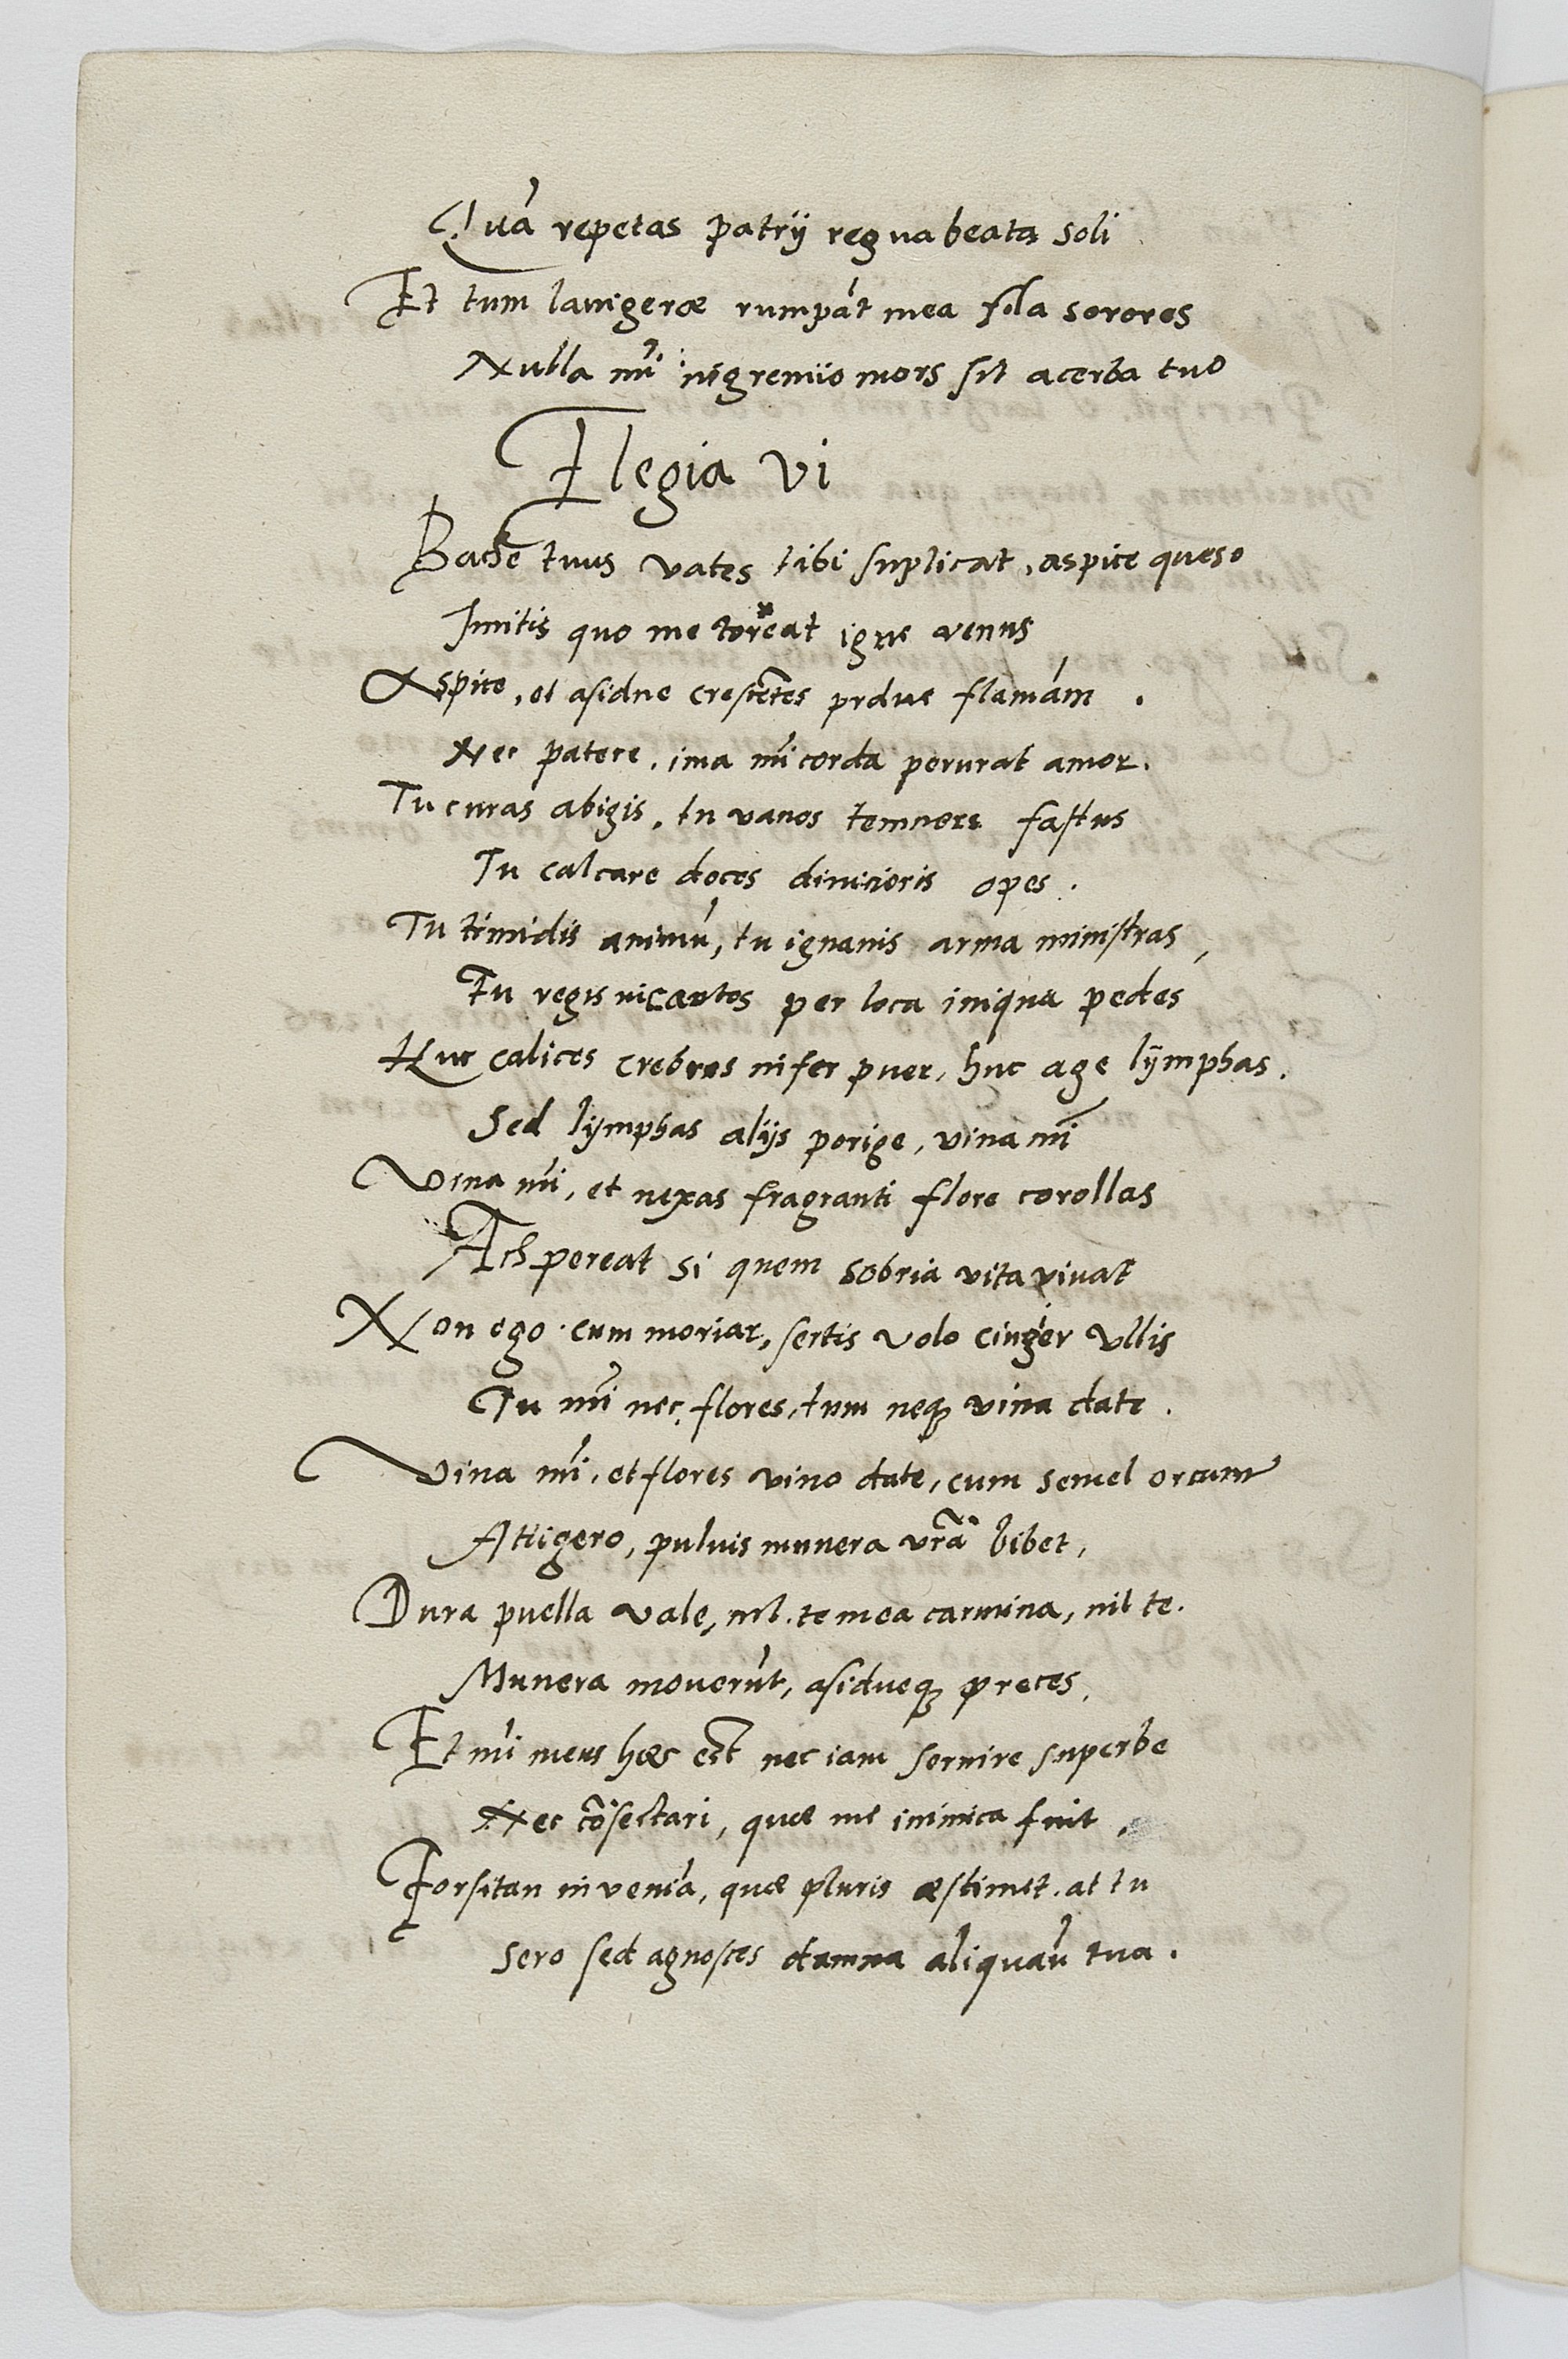 Quā repetas patrij regna beata soli
Et tum lanigeræ rumpāt mea fila sorores
Nulla mī ingremiio mors sit acerba tuo
Elegia vi
Bache tuus vates tibi suplicat, aspice queso
Imitis quo me torreat igne venus
Aspice, et asidue crescētes prdue flamām .
Nec patere, ima mī corda perurat amor.
Tu curas abigis, tu vanos temnere fastus
Tu calcare doces divicioris opes .
Tu timidis animū, tu ignavis arma ministras,
Tu regis incautos per loca iniqua pedes
Huc calices crebros infer puer, huc age lÿmphas.
Sed lÿmphas alijs porige, vina mī
Vina mī, et nexas fragranti flore corollas
Ach pereat si quem sobria vita iuvat
Non ego . cum moriar, sertis volo cinger ullis
Tu mī nec flores, tum neqꝫ vina date .
Vina mī, et flores vino date, cum semel orcum
Attigero, puluis munera vr̃a bibet,
Dura puella vale, nil te mea carmina, nil te.
Munera moverūt, asidueqꝫ preces,
Et mī mens hæc est nec iam servire superbe
Nec cōsectari, quæ me inimica fuit ,
Forsitan inveniā, quæ pluris æstimet . at tu
Sero sed agnosces damna aliquādo tua .